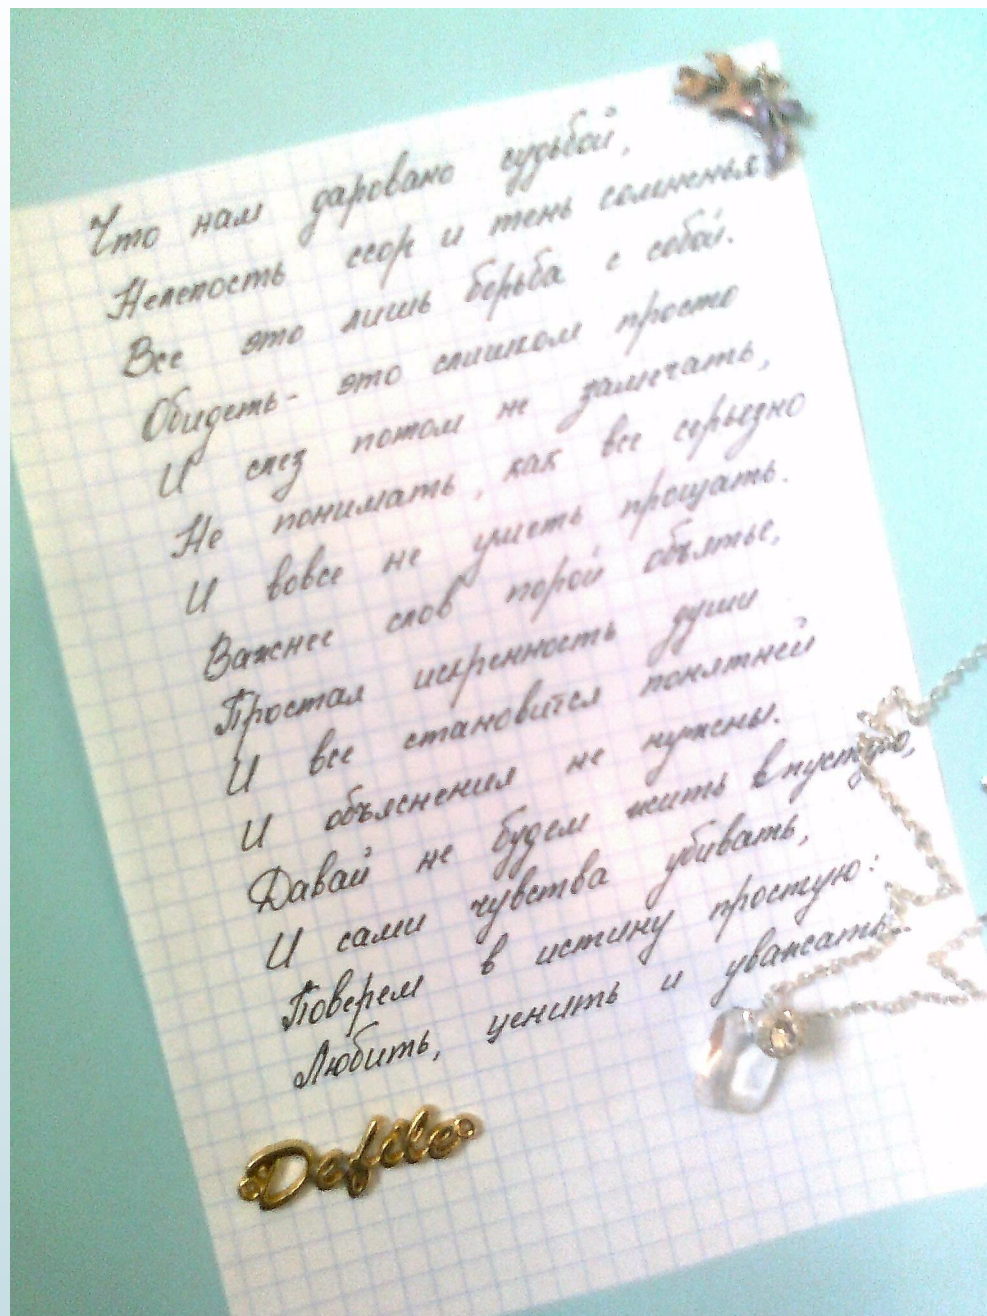 Что нам даровано судьбой,
Нелепость ссор и тень сомненья
Все это лишь борьба с собой.
Обидеть- это слишком просто
И слез потом не замечать,
Не понимать, как все серьезно
И вовсе не уметь прощать.
Важнее слов порой объятье,
Простая искренность души
И все становится понятней
И объяснения не нужны.
Давай не будем жить впустую,
И сами чувства убивать,
Поверем в истину простую:
Любить, ценить и уважать..
Defile